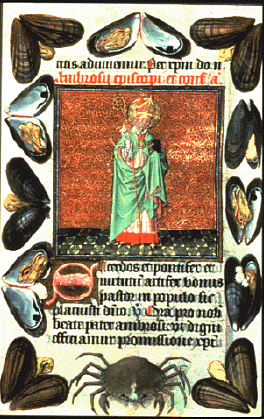 ctis adiuuemur. Per xpm do. n
Ambrosii episcopi et conf. a
Sacerdos et pontifex et
virtutum artifex bonus
pastor in populo sic
placuisti dno. V Ora pro nob
beate pater ambrosi. Vt digni
efficiamur promissione xpi.